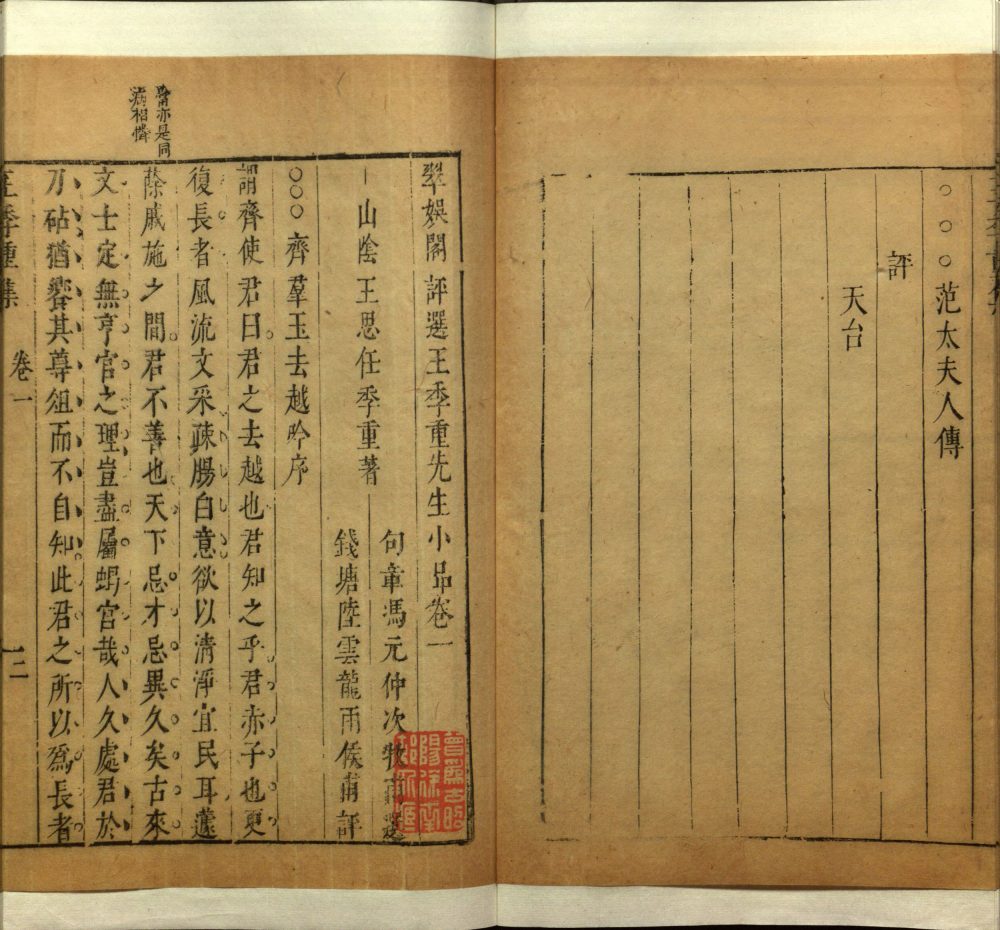 ○○○范太夫人傳
評
天台
翠娛閣評選王季重先生小品卷一
句章馮元仲次牧甫選
山陰王思任季重著
錢塘陸雲龍雨侯甫評
○○○齊羣玉去越吟序
謂齊使君曰君之去越也君知之乎君亦子也更
復長者風流文采疎腸白意欲以清淨宜民耳蘧
蒢戚施之間君不善也天下忌才忌異久矣古來
文士定無亨官之理豈盡屬蝎宮哉人久處君於
刀砧猶饗其尊俎而不自知此君之所以爲長者
亦是同
病相憐
王季重集
卷一